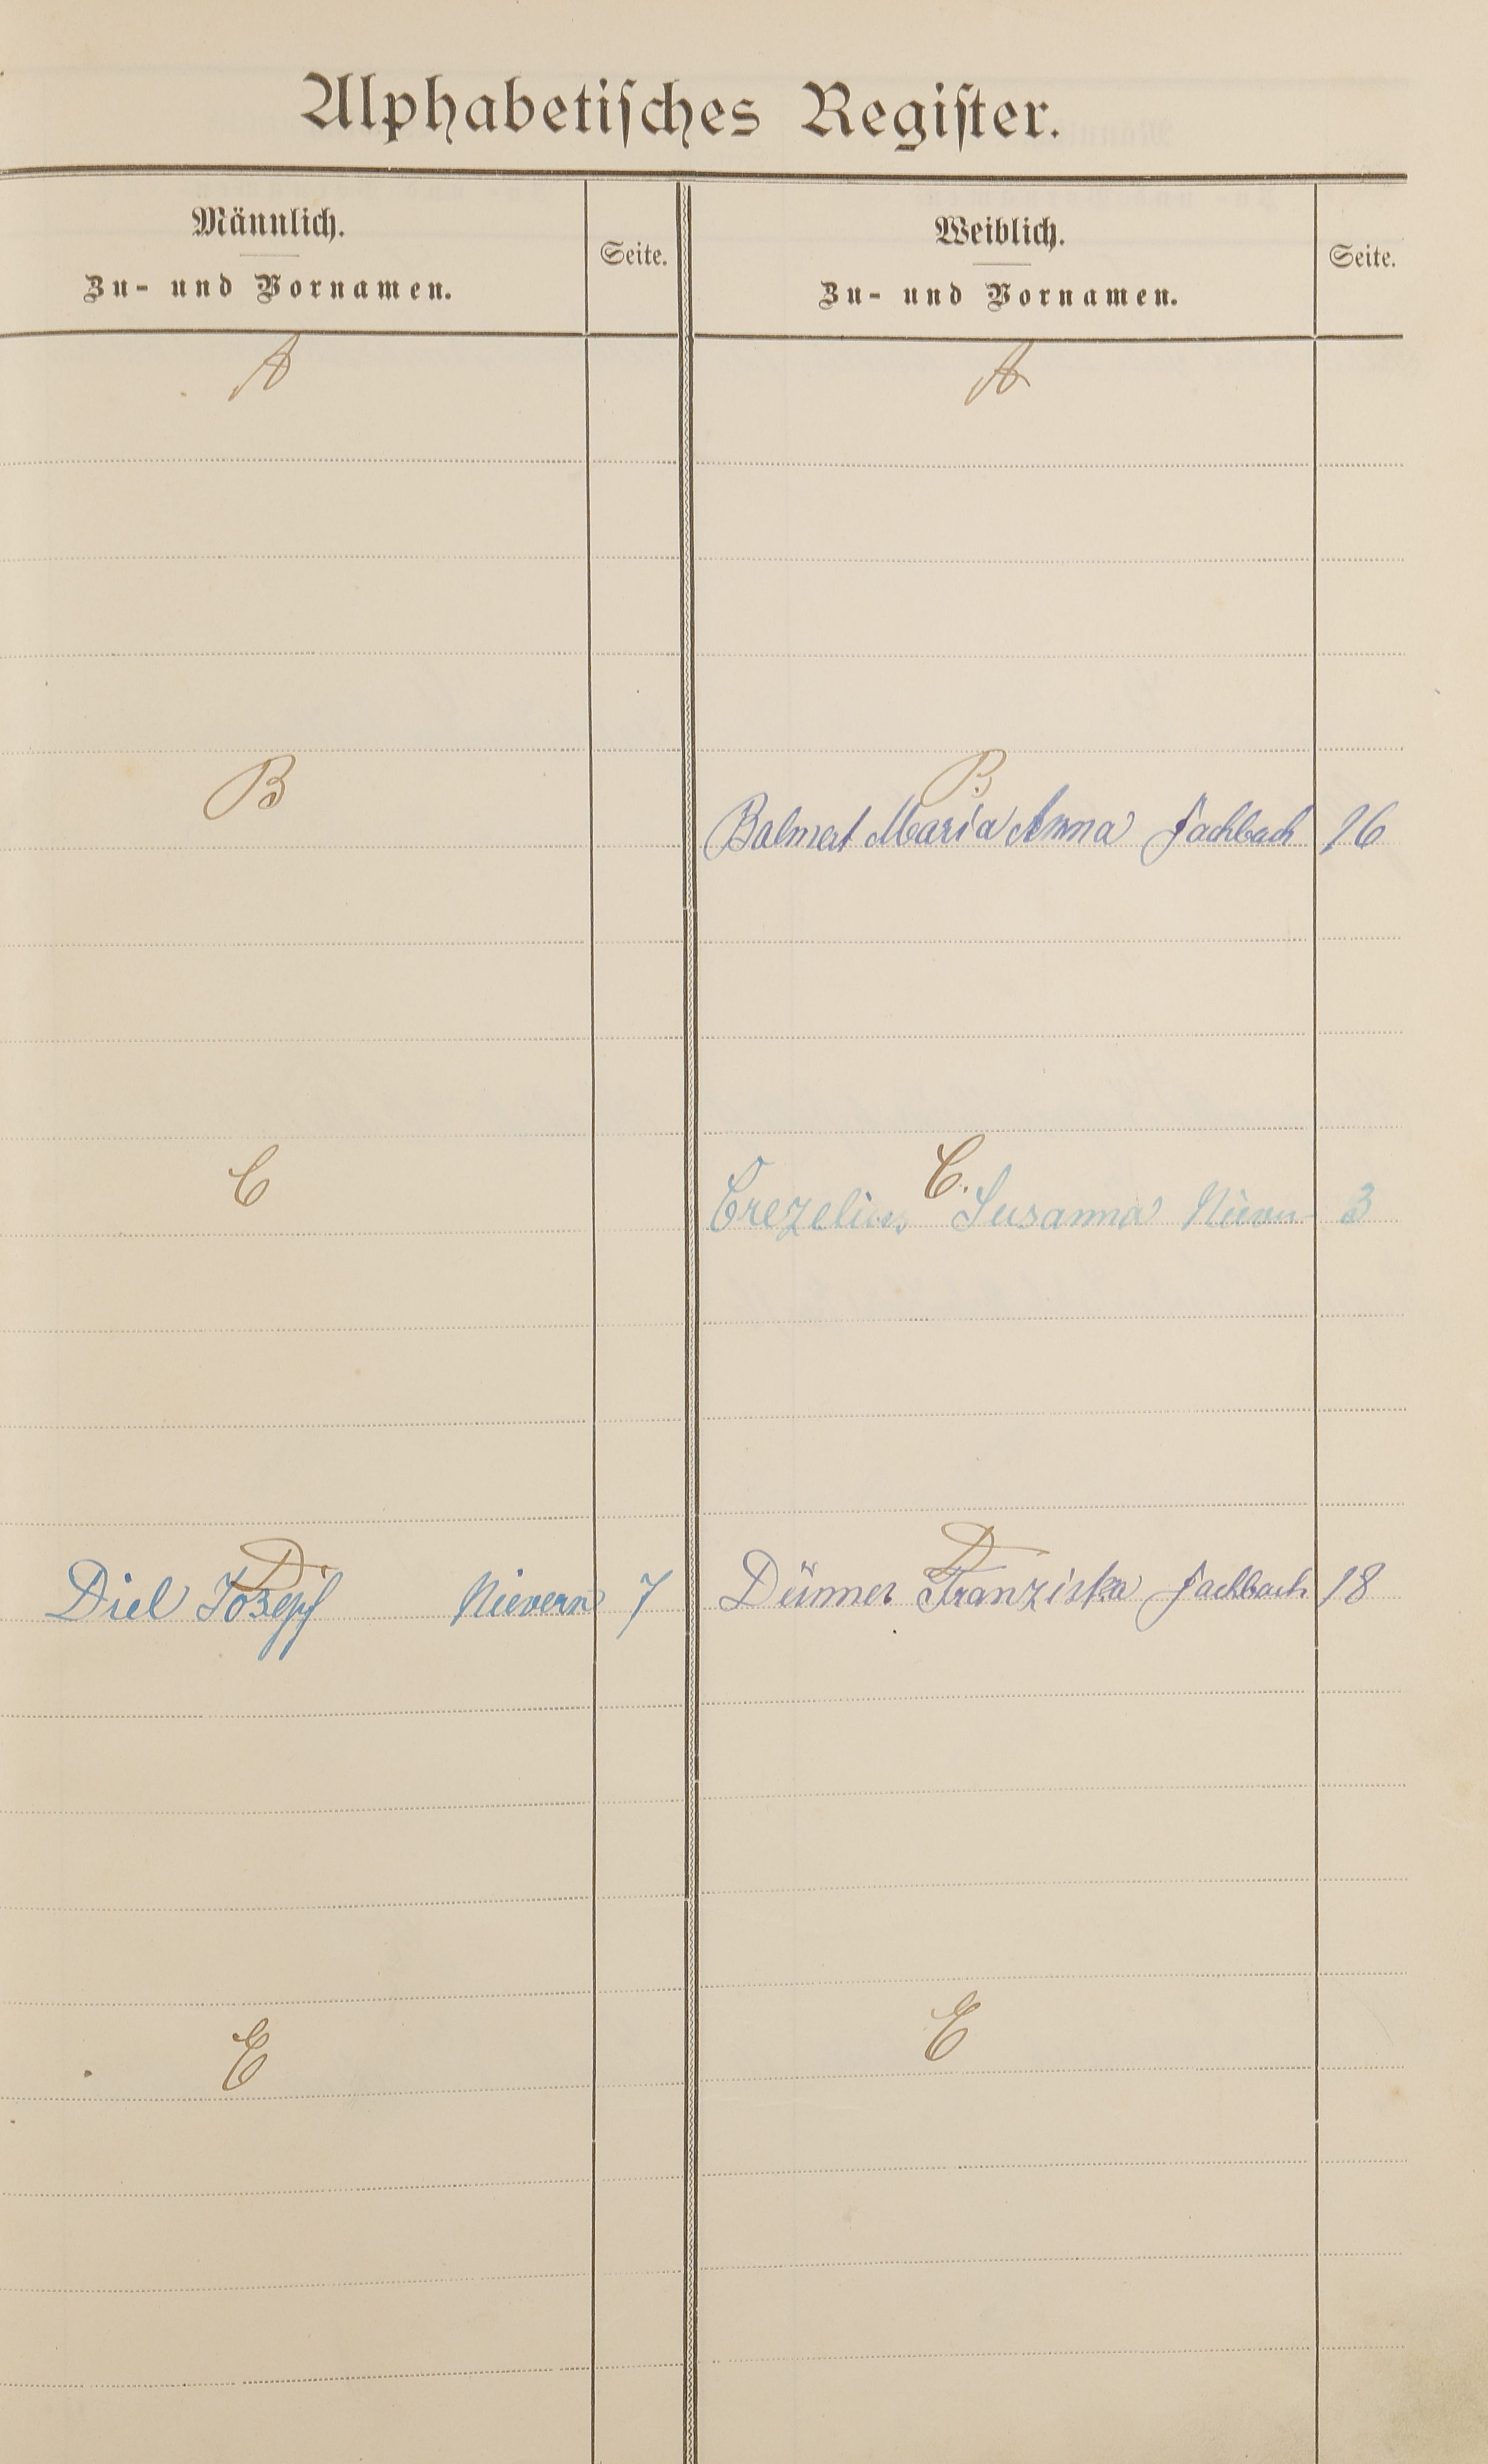 Alphabetisches Register.
Männlich.
Zu- und Vornamen.
Seite.
Weiblich.
Zu- und Vornamen.
Seite.
A
A
B
B.
Balmert Maria Anna Fachbach 16
C
C.
Crezelius Susanna Nievern 3
D.
D
Diel Josepf Nievern 7
Dünner Franziska Fachbach 18
E
E